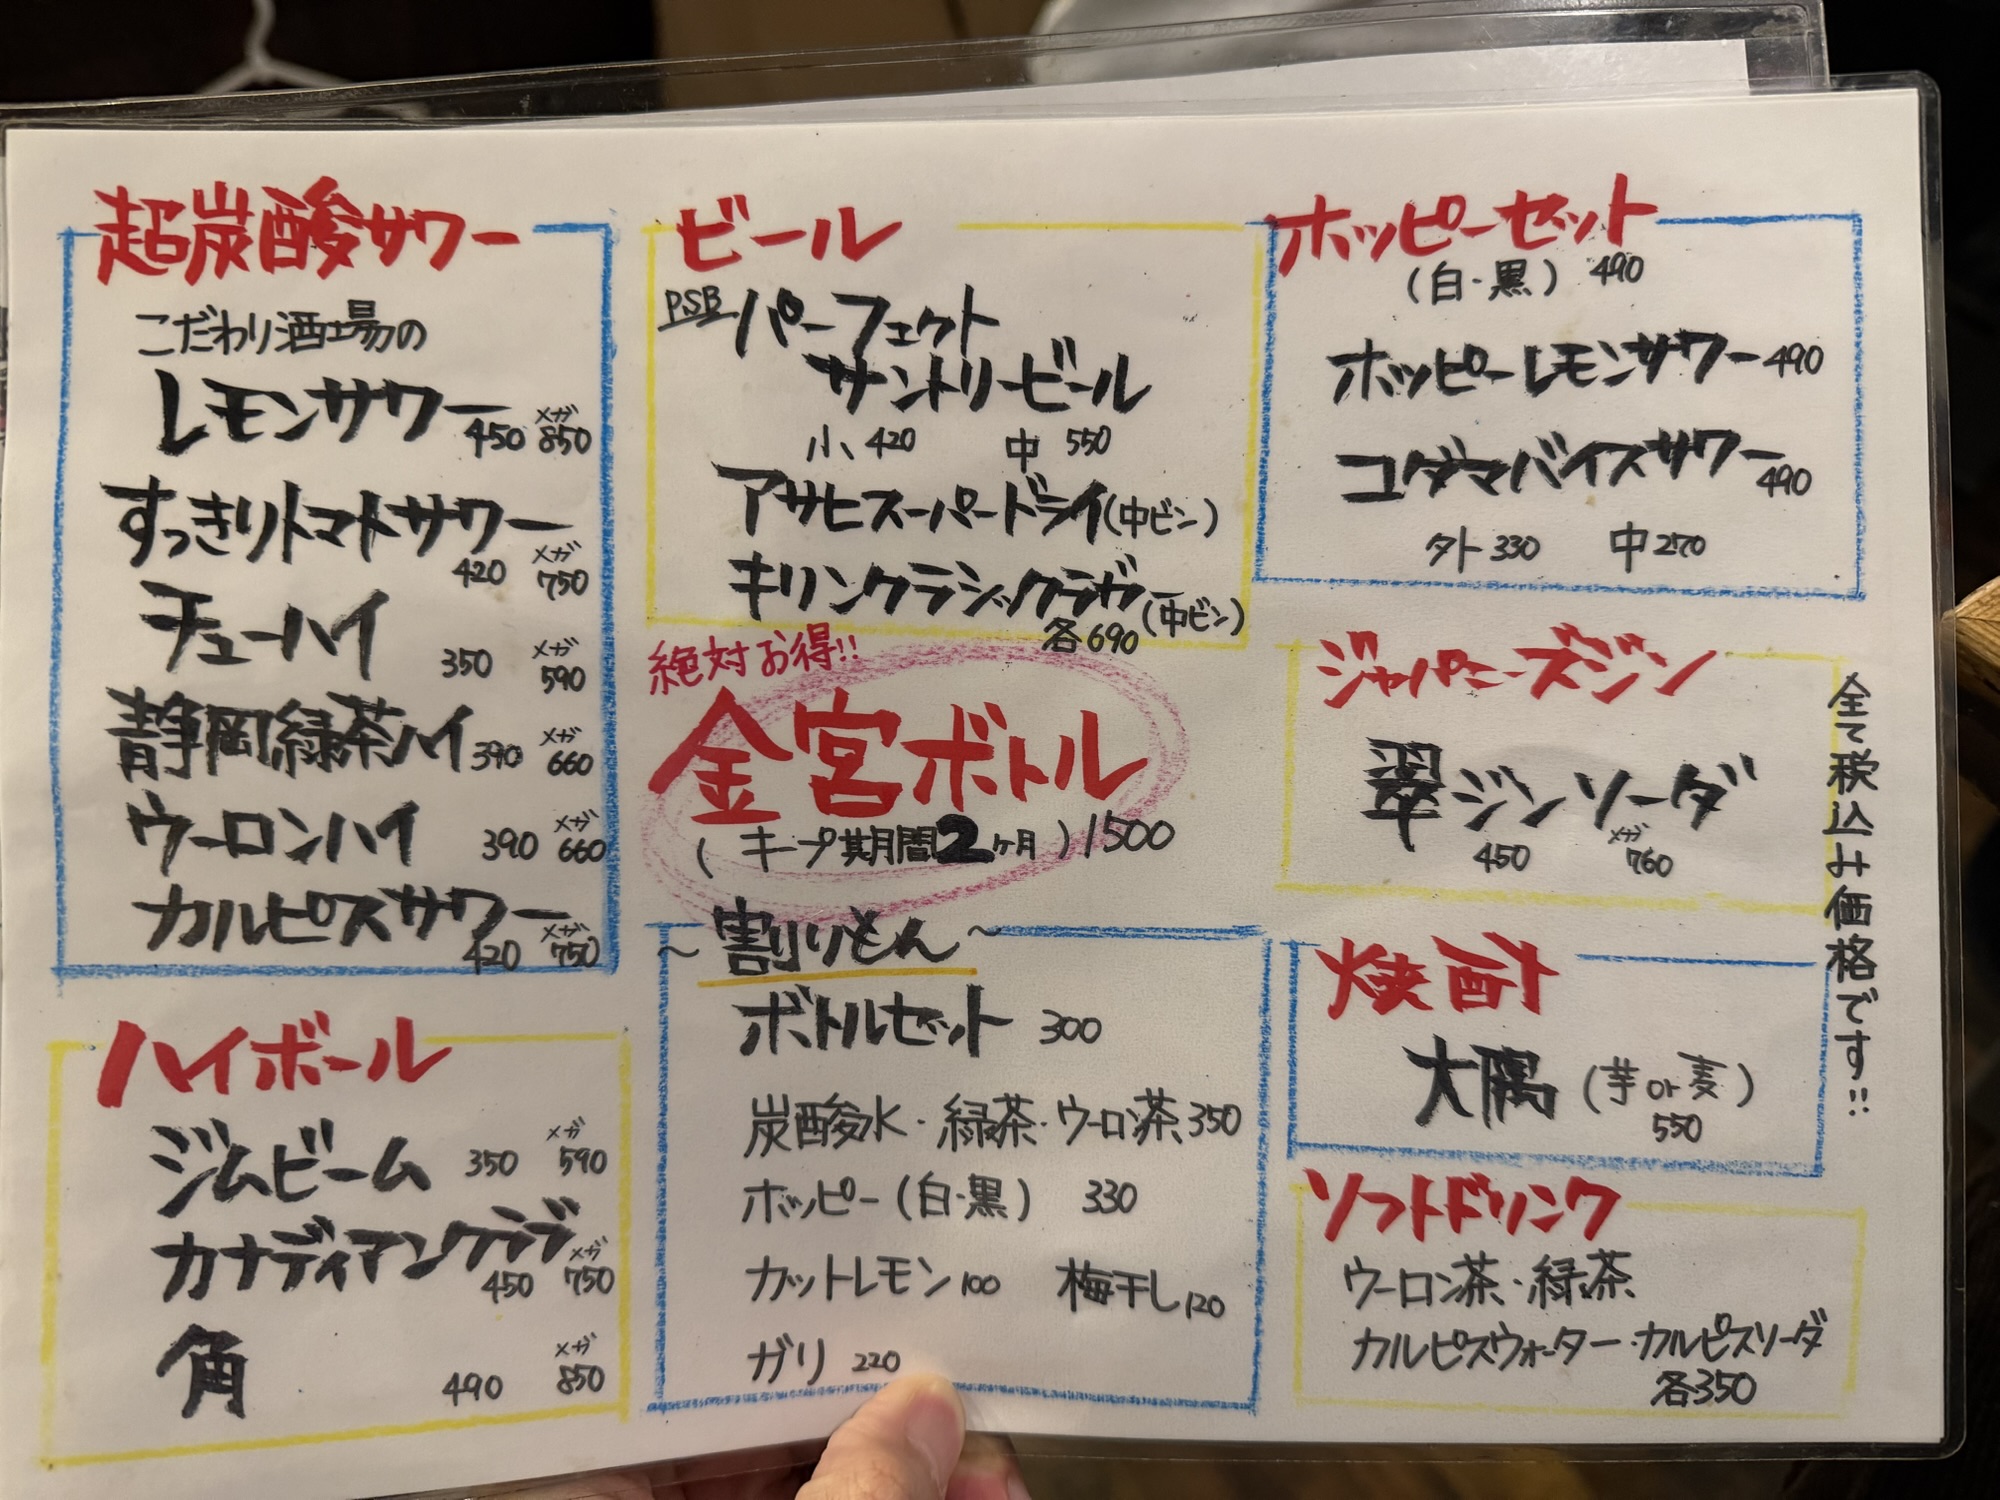 超炭酸サワー
こだわり酒場の
レモンサワー 450 メガ 850
すっきりトマトサワー
420 メガ 750
チューハイ 350 メガ 590
静岡緑茶ハイ 390 メガ 660
ウーロンハイ 390 メガ 660
カルピスサワー
420 メガ 750
ハイボール
ジムビーム 350 メガ 590
カナディアンクラブ
450 メガ 750
角 490 メガ 850
ビール
PSB パーフェクト
サントリービール
小 420 中 550
アサヒスーパードライ(中ビン)
キリンクラシックラガー(中ビン)
各690
絶対お得!!
金宮ボトル
(キープ期間2ヶ月) 1500
~割りもん~
ボトルセット 300
炭酸水・緑茶・ウーロン茶 350
ホッピー(白・黒) 330
カットレモン 100 梅干し 120
ガリ 220
ホッピーセット
(白・黒) 490
ホッピーレモンサワー 490
コダマバイスサワー 490
外 330 中 270
ジャパニーズジン
翠ジンソーダ
450 メガ 760
焼酎
大隅(芋or麦)
550
ソフトドリンク
ウーロン茶・緑茶
カルピスウォーター・カルピスソーダ
各350
全て税込み価格です!!